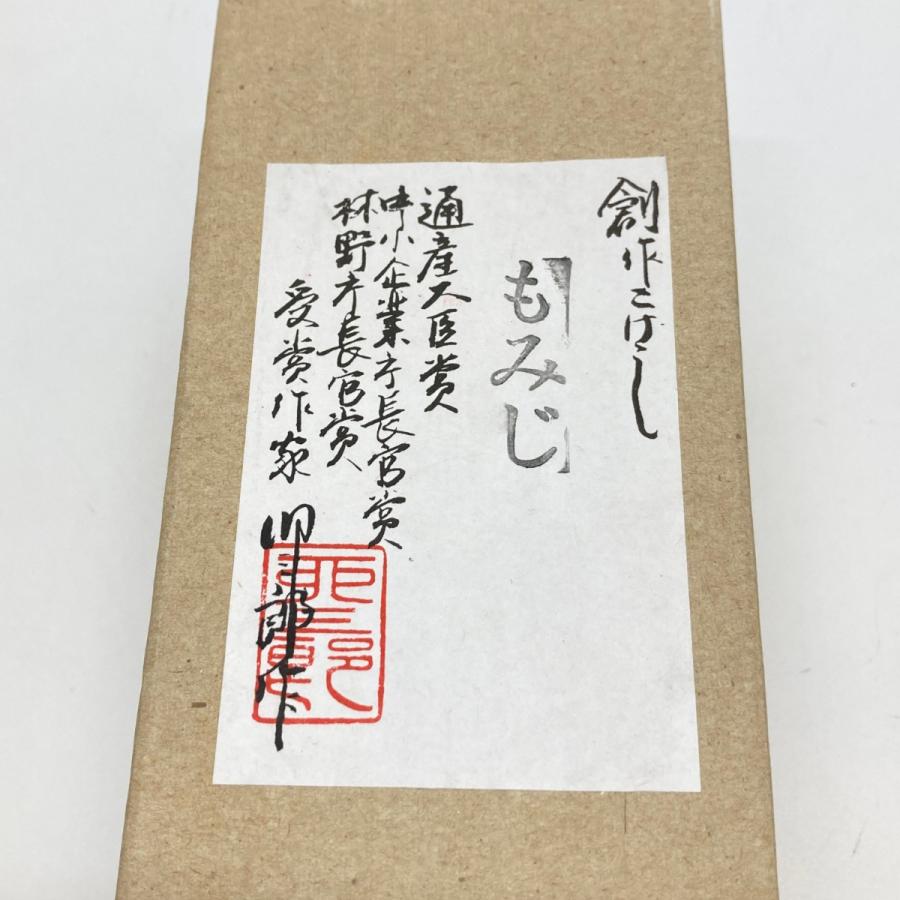 創作こけし
もみじ
通産大臣賞
中小企業庁長官賞
林野庁長官賞
受賞作家
卯三郎作
卯三郎